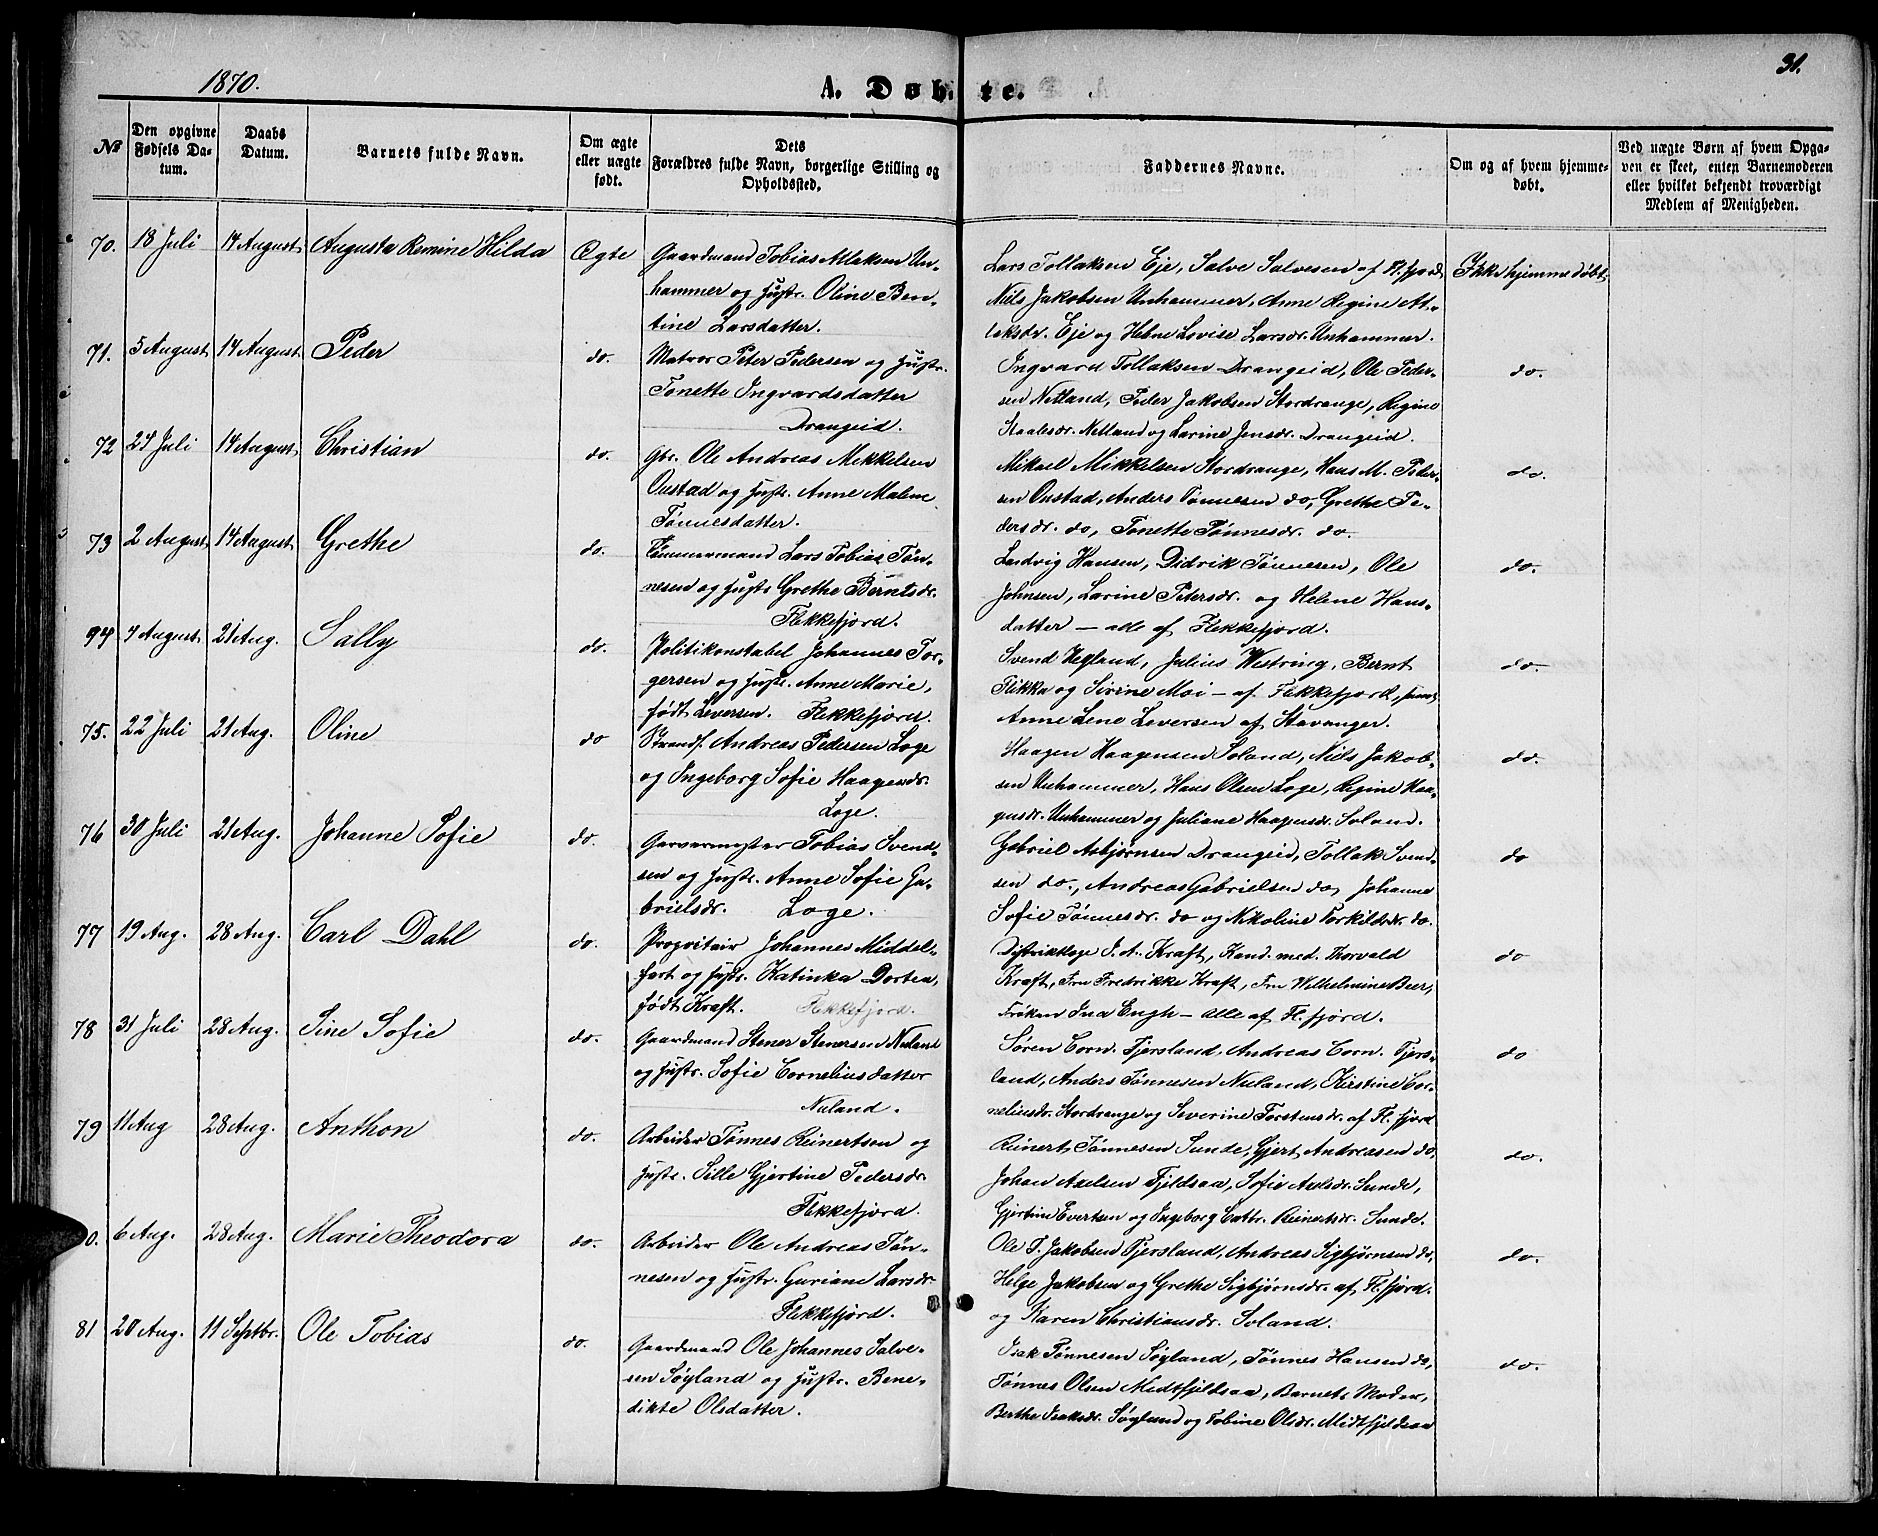 1870.
A. Døbte.
31.
No
Den opgivne Fødsels Da-
tum.
Daabs
Datum.
Barnets fulde Navn.
Om ægte
eller uægte
født.
Dets
Forældres fulde Navn, borgerlige Stilling og
Opholdssted.
Faddernes Navne.
Om og af hvem hjemme-
døbt.
Ved uægte Børn af hvem Opga-
ven er skeet, enten Barnemoderen
eller hvilket bekjendt troværdigt
Medlem af Menigheden.
70. 18 Juli 14 August Augusta Remine Hilda Ægte Gaardmand Tobias Atlaksen Un-
hammer og Hustr. Oline Ben-
tine Larsdatter.
Lars Tollaksen Eje, Salve Salvesen af Fl.fjord, Ikke hjemmedøbt
Niels Jakobsen Unhammer, Anne Regine At-
laksdr. Eje og Helene Lovise Larsdr. Unhammer.
71. 5 August 14 August Peder do. Matros Peter Pedersen og Hustr.
Tonette Ingvardsdatter
Drangeid.
Ingvard Tollaksen Drangeid, Ole Peder- do.
sen Netland, Peder Jakobsen Stordrange, Regine
Staalesdr. Netland og Larine Jensdr. Drangeid.
72 24 Juli 14 August Christian do. Gbr. Ole Andreas Mikkelsen
Oustad og Hustr. Anne Malene
Tønnesdatter.
Mikael Mikkelsen Stordrange, Hans M. Peder- do.
sen Oustad, Anders Tønnesen do, Grethe Pe-
dersdr. do, Tonette Tønnesdr. do.
73 2 August 14 August Grethe do. Tømmermand Lars Tobias Tøn-
nesen og Hustr Grethe Berntsdr.
Flekkefjord.
Ludvig Hansen, Didrik Tønnesen, Ole do.
Johnsen, Larine Petersdr. og Helene Hans-
datter — alle af Flekkefjord.
94 4 August 21 Aug. Sally do. Politikonstabel Johannes Tor-
gersen og Hustr. Anne Marie,
født Leversen. Flekkefjord.
Svend Hegland, Julius Westring, Bernt do.
Flikka og Sirine Moi — af Flekkefjord, samt
Anne Lene Leversen af Stavanger.
75. 22 Juli 21 Aug. Oline do Strandf. Andreas Pedersen Loge
og Ingeborg Sofie Haagensdr.
Loge.
Haagen Haagensen Soland, Niels Jakob- do.
sen Unhammer, Hans Olsen Loge, Regine Haa-
gensdr. Unhammer og Juliane Haagensdr. Soland.
76 30 Juli 21 Aug. Johanne Sofie do. Garvermester Tobias Svend-
sen og Hustr. Anne Sofie Ga-
brielsdr. Loge.
Gabriel Asbjørnsen Drangeid, Tollak Svend- do
sen do., Andreas Gabrielsen do, Johanne
Sofie Tønnesdr. do og Nikoline Torkildsdr. do.
77 19 Aug. 28 Aug. Carl Dahl do. Propritair Johannes Middel-
fart og Hustr. Katinka Dortea,
født Kraft. Flekkefjord.
Distriktlæge J. A. Kraft, Kand. med. Thorvald do
Kraft, Fru Fredrikke Kraft, Fru Wilhelmine Beer,
Frøken Ina Engh — alle af Fl.fjord.
78 31 Juli 28 Aug. Sine Sofie do. Gaardmand Stener Stenersen Nuland
og Hustr. Sofie Corneliusdatter
Nuland.
Søren Corn. Fjersland, Andreas Corn. Fjers- do
land, Anders Tønnesen Nuland, Kirstine Cor-
neliusdr. Stordrange og Severine Torstensdr. af Fl.fjord
79 11 Aug 28 Aug. Anthon do. Arbeider Tønnes Reinertsen og
Hustr. Sille Gjertine Pedersdr.
Flekkefjord.
Reinert Tønnesen Sunde, Gjert Andreasen do, do.
Johan Axelsen Fjeldsaa, Sofie Axelsdr. Sunde,
Gjertine Evertsen og Ingeborg Cathr. Reinertsdr. Sunde.
0. 6 Aug. 28 Aug. Marie Theodora do. Arbeider Ole Andreas Tøn-
nesen og Hustr. Guriane Larsdr.
Flekkefjord.
Ole T. Jakobsen Fjersland, Andreas Sigbjørnsen do, do.
Helge Jakobsen og Grethe Sigbjørnsdr. af Fl.fjord.
og Karen Christiansdr. Soland.
81 20 Aug. 11 Septbr. Ole Tobias do. Gaardmand Ole Johannes Salve-
sen Søyland og Hustr. Bene-
dikte Olsdatter.
Isak Tønnesen Søyland, Tønnes Hansen do, do.
Tønnes Olsen Midtfjeldsaa, Barnets Moder,
Berthe Isaksdr. Søyland og Tobine Olsdr. Midtfjeldsaa